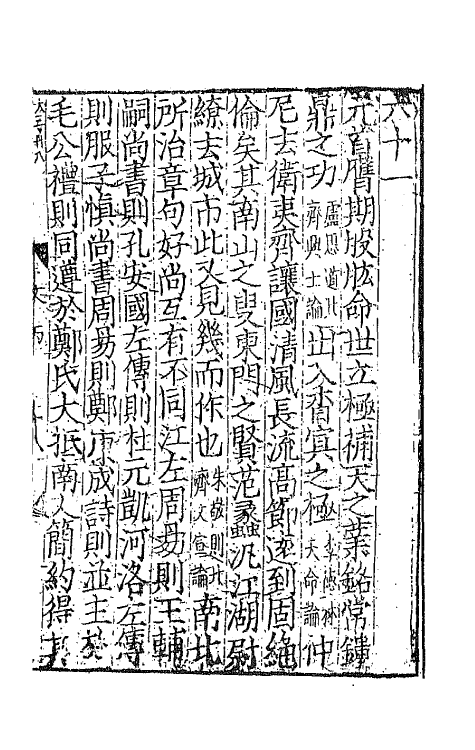 六十一
元首膺期股肱命世立極補天之業銘常鏤
鼎之功盧思道北齊興亡論出入杳冥之極李德林天命論仲
尼去衛夷齊讓國清風長流高節遠到固絶
倫矣其南山之叟東門之賢范蠡汎江湖尉
繚去城市此又見幾而作也朱敬則北齊文宣論南北
所治章句好尚互有不同江左周易則王輔
嗣尚書則孔安國左傳則杜元凱河洛左傳
則服子慎尚書周易則鄭康成詩則並主於
毛公禮則同遵於鄭氏大抵南人簡約得其